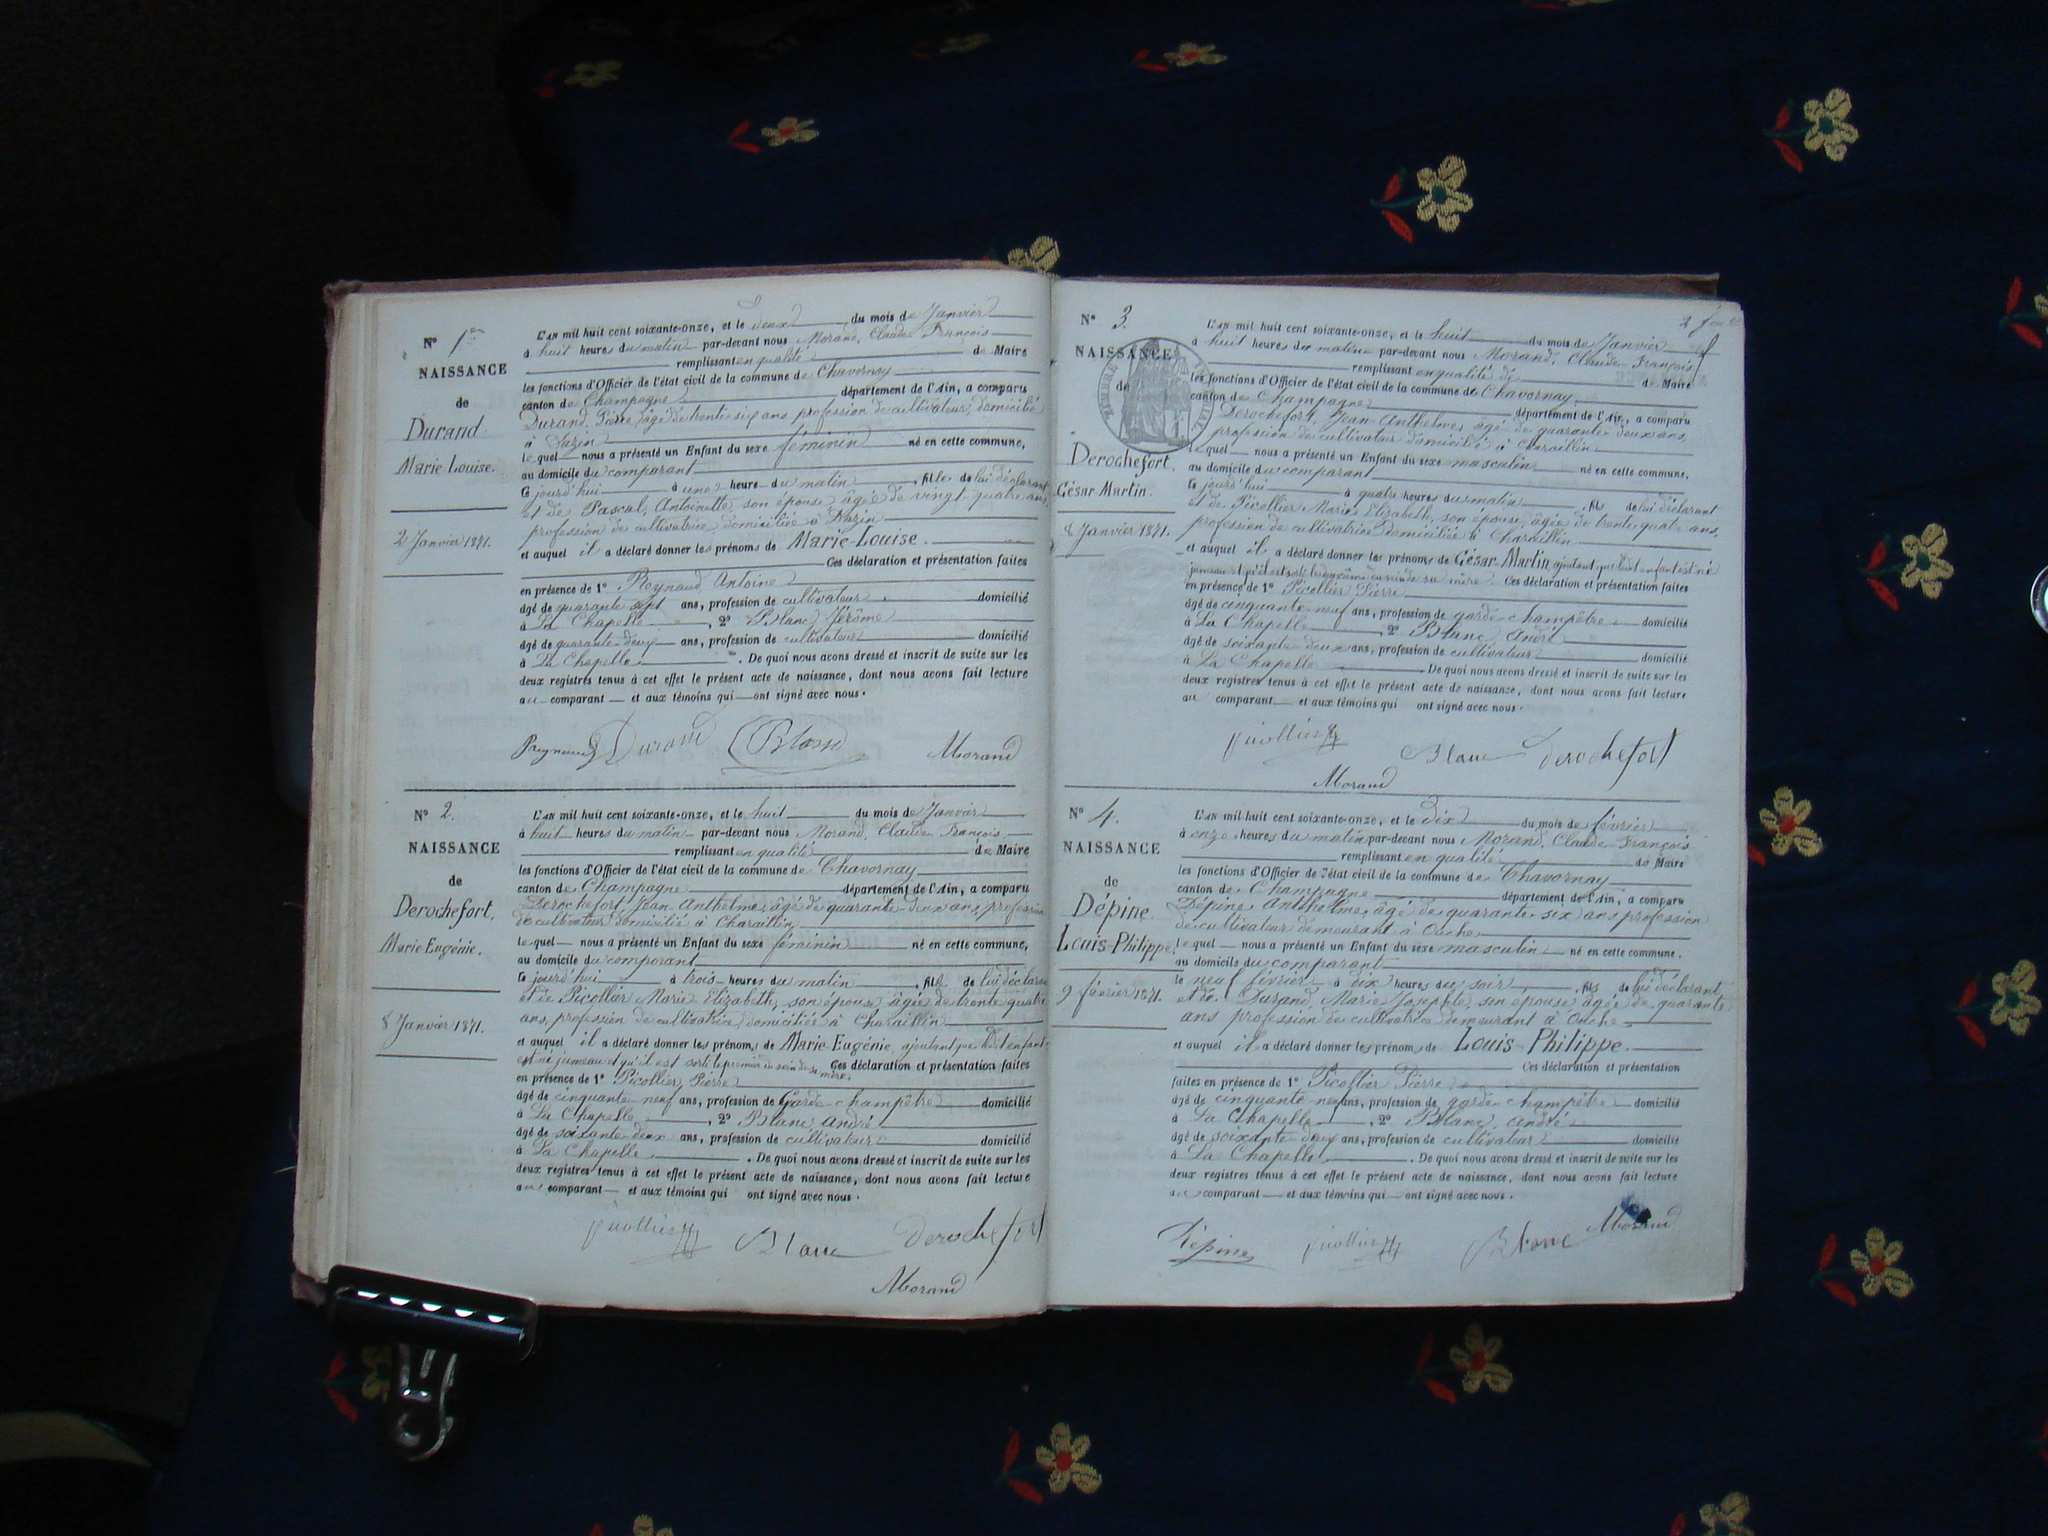 N° 1er
NAISSANCE
de
Durand
Marie Louise.
2 Janvier 1871.
L'AN mil huit cent soixante-onze, et le deux du mois de Janvier
à huit heures du matin par-devant nous Morand, Claude François
remplissant en qualité de Maire
les fonctions d'Officier de l'état civil de la commune de Chavornay
canton de Champagne département de l'Ain, a comparu
Durand, Pierre, âgé de trente-six ans profession de cultivateur, domicilié
à
le quel nous a présenté un Enfant du sexe féminin né en cette commune,
au domicile du comparant
le jourd'hui à une heure du matin, fille de lui déclarant
et de Pascal, Antoinette, son épouse âgée de vingt quatre ans,
profession de cultivatrice, domiciliée à
et auquel il a déclaré donner les prénoms de Marie-Louise.
Ces déclaration et présentation faites
en présence de 1° Reynaud, Antoine
âgé de quarante sept ans, profession de cultivateur domicilié
à La Chapelle, 2° Blanc, Jérôme
âgé de quarante-deux ans, profession de cultivateur domicilié
à La Chapelle. De quoi nous avons dressé et inscrit de suite sur les
deux registres tenus à cet effet le présent acte de naissance, dont nous avons fait lecture
au comparant et aux témoins qui ont signé avec nous.
Reynaud Durand Blanc Morand
N° 2.
NAISSANCE
de
Derochefort,
Marie Eugénie.
8 Janvier 1871.
L'AN mil huit cent soixante-onze, et le huit du mois de Janvier
à huit heures du matin par-devant nous Morand, Claude François
remplissant en qualité de Maire
les fonctions d'Officier de l'état civil de la commune de Chavornay
canton de Champagne département de l'Ain, a comparu
Derochefort, Jean Anthelme, âgé de quarante-deux ans, profession
de cultivateur domicilié à Charaillin
le quel nous a présenté un Enfant du sexe féminin né en cette commune,
au domicile du comparant
le jourd'hui à trois heures du matin, fille de lui déclarant
et de Picollier, Marie Elizabeth, son épouse, âgée de trente quatre
ans, profession de cultivatrice, domiciliée à Charaillin
et auquel il a déclaré donner les prénoms de Marie-Eugénie, ajoutant que ledit enfant
est né jumeau et qu'il est sorti le premier du sein de sa mère. Ces déclaration et présentation faites
en présence de 1° Picollier, Pierre
âgé de cinquante neuf ans, profession de Garde-champêtre domicilié
à La Chapelle, 2° Blanc, André
âgé de soixante-deux ans, profession de cultivateur domicilié
à La Chapelle. De quoi nous avons dressé et inscrit de suite sur les
deux registres tenus à cet effet le présent acte de naissance, dont nous avons fait lecture
au comparant et aux témoins qui ont signé avec nous.
Picollier Blanc Derochefort
Morand
2
N° 3.
NAISSANCE
de
TIMBRE IMPÉRIAL
Derochefort.
César Martin.
8 Janvier 1871.
L'AN mil huit cent soixante-onze, et le huit du mois de Janvier
à huit heures du matin par-devant nous Morand, Claude François
remplissant en qualité de de Maire
les fonctions d'Officier de l'état civil de la commune de Chavornay,
canton de Champagne département de l'Ain, a comparu
Derochefort, Jean Anthelme, âgé de quarante-deux ans,
profession de cultivateur domicilié à Charaillin
le quel nous a présenté un Enfant du sexe masculin né en cette commune,
au domicile du comparant
le jourd'hui à quatre heures du matin, fils de lui déclarant
et de Picollier, Marie Elizabeth, son épouse, âgée de trente-quatre ans,
profession de cultivatrice domiciliée à Charaillin
et auquel il a déclaré donner les prénoms de César Martin, ajoutant que ledit enfant est né
jumeau et qu'il est sorti le du sein de sa mère. Ces déclaration et présentation faites
en présence de 1° Picollier Pierre
âgé de cinquante-neuf ans, profession de garde-champêtre domicilié
à La Chapelle, 2° Blanc, André
âgé de soixante deux ans, profession de cultivateur domicilié
à La Chapelle. De quoi nous avons dressé et inscrit de suite sur les
deux registres tenus à cet effet le présent acte de naissance, dont nous avons fait lecture
au comparant et aux témoins qui ont signé avec nous.
Picollier Blanc Derochefort
Morand
N° 4.
NAISSANCE
de
Dépine
Louis-Philippe.
9 février 1871.
L'AN mil huit cent soixante-onze, et le dix du mois de février
à onze heures du matin par-devant nous Morand, Claude François
remplissant en qualité de Maire
les fonctions d'Officier de l'état civil de la commune de Chavornay
canton de Champagne département de l'Ain, a comparu
Dépine, Anthelme, âgé de quarante-six ans profession
de cultivateur demeurant à Ouche
le quel nous a présenté un Enfant du sexe masculin né en cette commune.
au domicile du comparant
le neuf février à dix heures du soir, fils de lui déclarant,
et de Durand, Marie Josephte, son épouse âgée de quarante
ans profession de cultivatrice demeurant à Ouche
et auquel il a déclaré donner les prénoms de Louis Philippe.
Ces déclaration et présentation
faites en présence de 1° Picollier Pierre
âgé de cinquante neuf ans, profession de garde champêtre domicilié
à La Chapelle, 2° Blanc, André
âgé de soixante deux ans, profession de cultivateur domicilié
à La Chapelle. De quoi nous avons dressé et inscrit de suite sur les
deux registres tenus à cet effet le présent acte de naissance, dont nous avons fait lecture
au comparant et aux témoins qui ont signé avec nous.
Dépine Picollier Blanc Morand